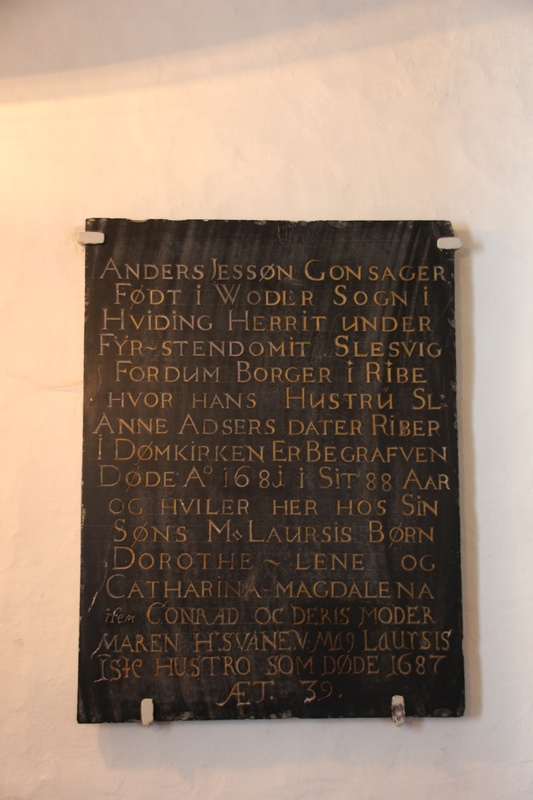 ANDERS JESSØN GONSAGER
FØDT I WODER SOGN I
HVIDING HERRIT UNDER
FYR~STENDOMIT SLESVIG
FORDUM BORGER I RIBE
HVOR HANS HUSTRU SL:
ANNE ADSERS DATER RIBER
I DØMKIRKEN ER BEGRAFVEN
DØDE Aº 1681 I SIT 88 AAR
OG HVILER HER HOS SIN
SØNS M: LAURSIS BØRN
DOROTHE ~ LENE OG
CATHARINA-MAGDALENA
item CONRAD OC DERIS MODER
MAREN H. SVANE V. LAURSIS
ISte HUSTRO SOM DØDE 1687
ÆT. 39.